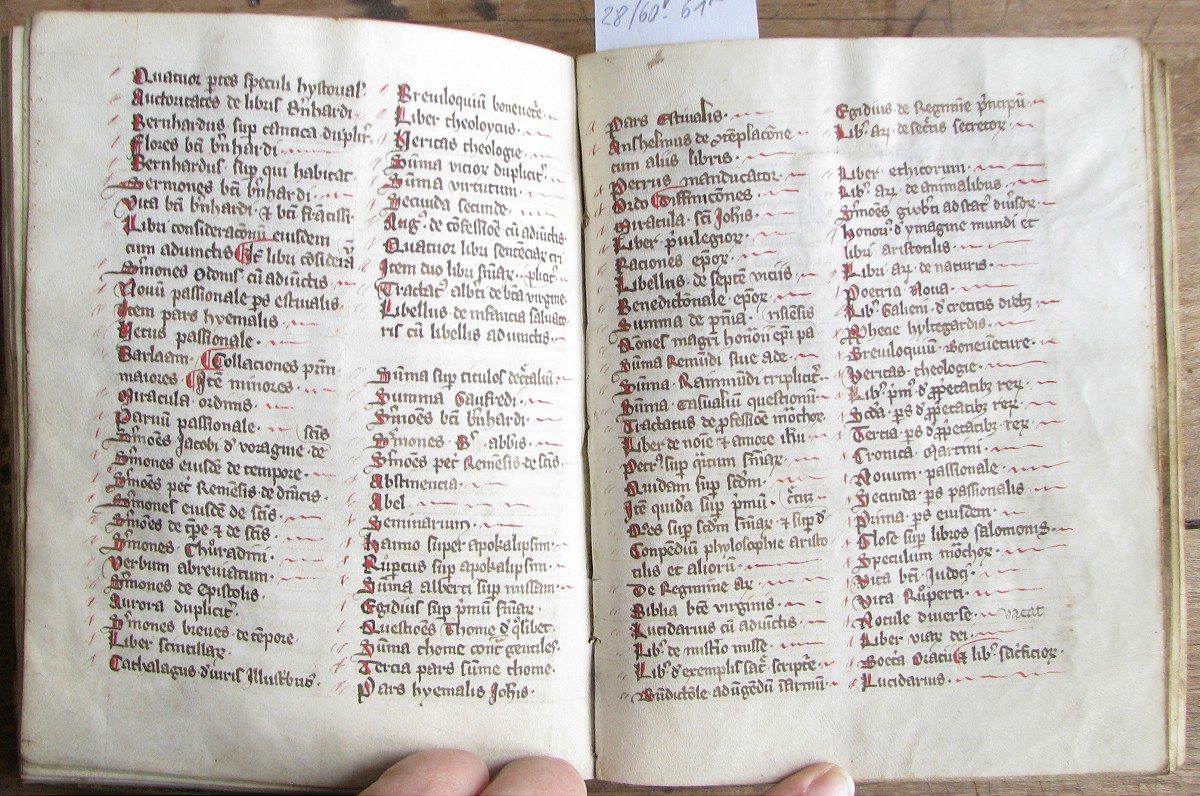 28/60v-61r
61
Quatuor ptes speculi hystorial'
Auctoritates de libris b'nhardi
Bernhardus sup cantica duplit'
Flores bti b'nhardi
Bernhardus sup qui habitat
Sermones bti b'nhardi
Vita bti b'nhardi & bti
Libri consideracionu eiusdem
cum adiunctis Ite libri cosideracoi
S'mones Odonis cu adiuctis
Nouu passionale ps estiualis
Item pars hyemalis
Vetus passionale
Barlaam Collaciones prim
maiores Ite minores
Miracula ordinis
Paruu passionale
S'moes Jacobi d' voragine de scis
S'mones eiusde de tempore
S'moes pet' Remesis de dnicis
S'mones eiusde de scis
S'moes de tpe & de scis
S'mones Churadini
Verbum abreuiatum
S'mones de Epistolis
Aurora duplicit'
S'mones breues de tempore
Liber scintillar'
Cathalagus d' uiris Illustbus
Breuiloquiu boneuet'e
Liber theoloycus
Veritas theologie
Suma vicior duplicit'
Suma virtutum
Secunda secunde
Aug' de cofessioe cu adiuctis
Quatuor libri sentenciar'
Item duo libri snar' plicit'
Tractat' alb'ti de bta virgine
Libellus de infancia saluato
ris cu libellis adiunctis
Suma sup titulos decretaliu
Summa Gaufredi
S'moes bti b'nhardi
S'mones B' abbis
S'moes pet' Remesis de scis
Abstinencia
Abel
Seminarium
Haimo super apokalipsim
Ruptus sup apokalipsim
Suma alberti sup missam
Egidius sup pmu snar'
Questioes Thome d' q'libet
Suma thome cont' gentiles
Tercia pars sume thome
Pars hyemalis Johis
Pars Estiualis
Anshelmus de
cum aliis libris
Petrus manducator
Ordo Diffinicones
Miracula sci Johis
Liber puilegior
Raciones epor
Libellus de septe viciis
Benedictonale epor
Summa de pnia
magri honorii epi pa risiesis
Suma Remudi siue ade
Suma Raimudi triplicit'
Suma Casualiu questionu
Tractatus de pfessioe mochor
Liber de noie & amore ihu
Petr' sup q'rtum snar'
Quidam sup scdm
Ite quida sup pmu
Q'oes sup scdm snar' & sup
Conpediu phylosophie aristo
tilis et alioru
De Regimine
Biblia bte virginis
Lucidarius cu adiuctis
Lib' de mist'io misse
Lib' d' exemplis sac' scripte
B'ndictoe ad
Egidius de Regimie pncipu
Lib' ar' de secretis secretor
Liber ethicorum
Lib' ar' de animalibus
S'moes gwb'ti ad stat' diu'sor
honori' d' ymagine mundi et
libri aristotilis
Libri ar' de naturis
Poetria Noua
Lib' Galieni d' creticis dieb'
hyltegardis
Breuiloquiu Boneueture
Veritas theologie
Lib' pm' d' ppetatib' rer
Scda ps d' ppetatib' rer
Tercia ps d' ppetatib' rer
Cronica Martini
Nouum passionale
Secunda ps passionalis
Prima ps eiusdem
Glose sup libros salomonis
Speculum mochor
Vita bti Judoci
Vita Ruperti
Notule diuerse vacat
Liber viar dei
lib' sac'ficior
Lucidarius